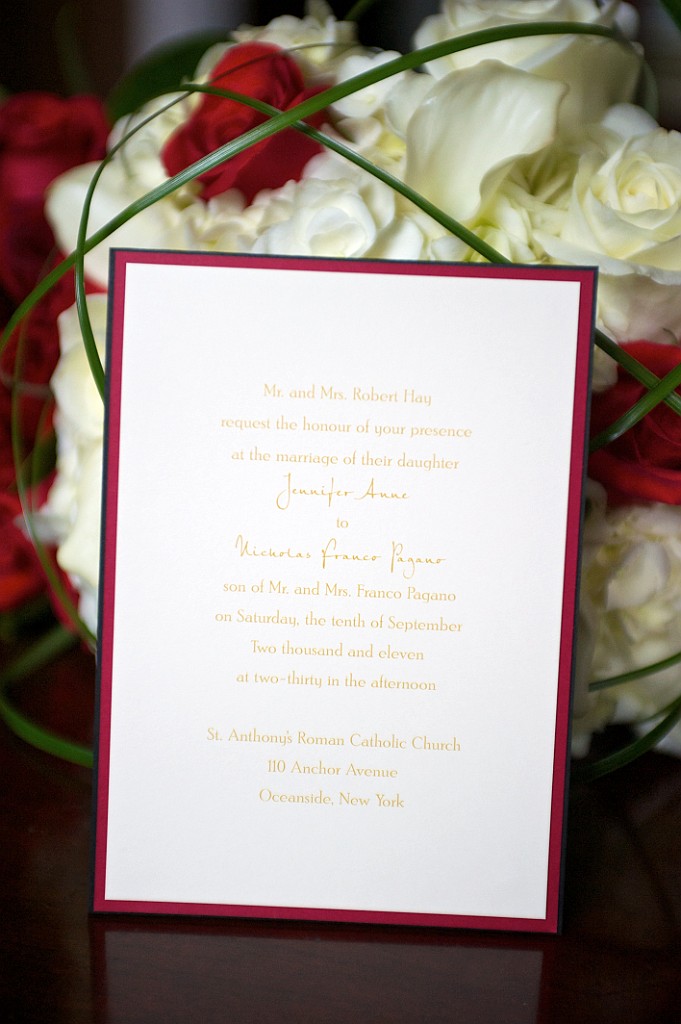 Mr. and Mrs. Robert Hay
request the honour of your presence
at the marriage of their daughter
Jennifer Anne
to
Nicholas Franco Pagano
son of Mr. and Mrs. Franco Pagano
on Saturday, the tenth of September
Two thousand and eleven
at two-thirty in the afternoon
St. Anthony's Roman Catholic Church
110 Anchor Avenue
Oceanside, New York